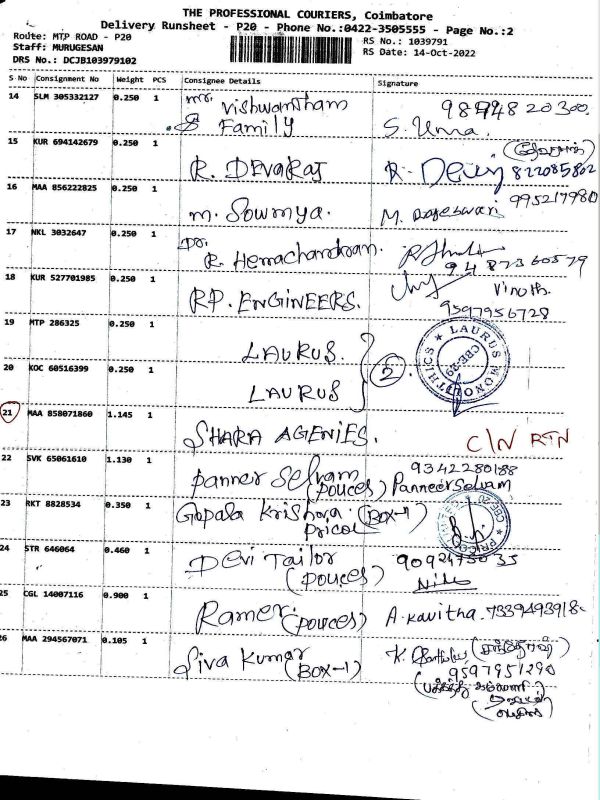 THE PROFESSIONAL COURIERS, Coimbatore
Delivery Runsheet - P20 - Phone No.:0422-3505555 - Page No.:2
Route: MTP ROAD - P20
Staff: MURUGESAN
DRS No.: DCJB103979102
RS No.: 1039791
RS Date: 14-Oct-2022
S No Consignment No Weight PCS Consignee Details Signature
14 SLM 305332127 0.250 1 Mr. Vishwantham
& Family S. Uma.
15 KUR 694142679 0.250 1 R. DEVARAJ
16 MAA 856222825 0.250 1 M. Sowmya. M. Rajeswari
17 NKL 3032647 0.250 1 Dr.
R. Hemachandran.
18 KUR 527701985 0.250 1 RP. ENGINEERS. Vinoth.
9597956728
19 MTP 286325 0.250 1 LAURUS.
20 KOC 60516399 0.250 1 LAURUS 2
LAURUS MONOLITHICS CBE-29
21 MAA 858071860 1.145 1 SHARA AGENIES. C/N RTN
22 SVK 65061610 1.130 1 Panner Selvam 9342280188
(POUCES) Panneer Selvam
23 RKT 8828534 0.350 1 Gopala Krishna (BOX-1)
Pricol
24 STR 646064 0.460 1 Devi Tailor
(POUCES)
25 CGL 14007116 0.900 1 Ramer. (POUCES) A. Kavitha. 7339493918
26 MAA 294567071 0.105 1 Siva Kumar
(BOX-1) 9597951290